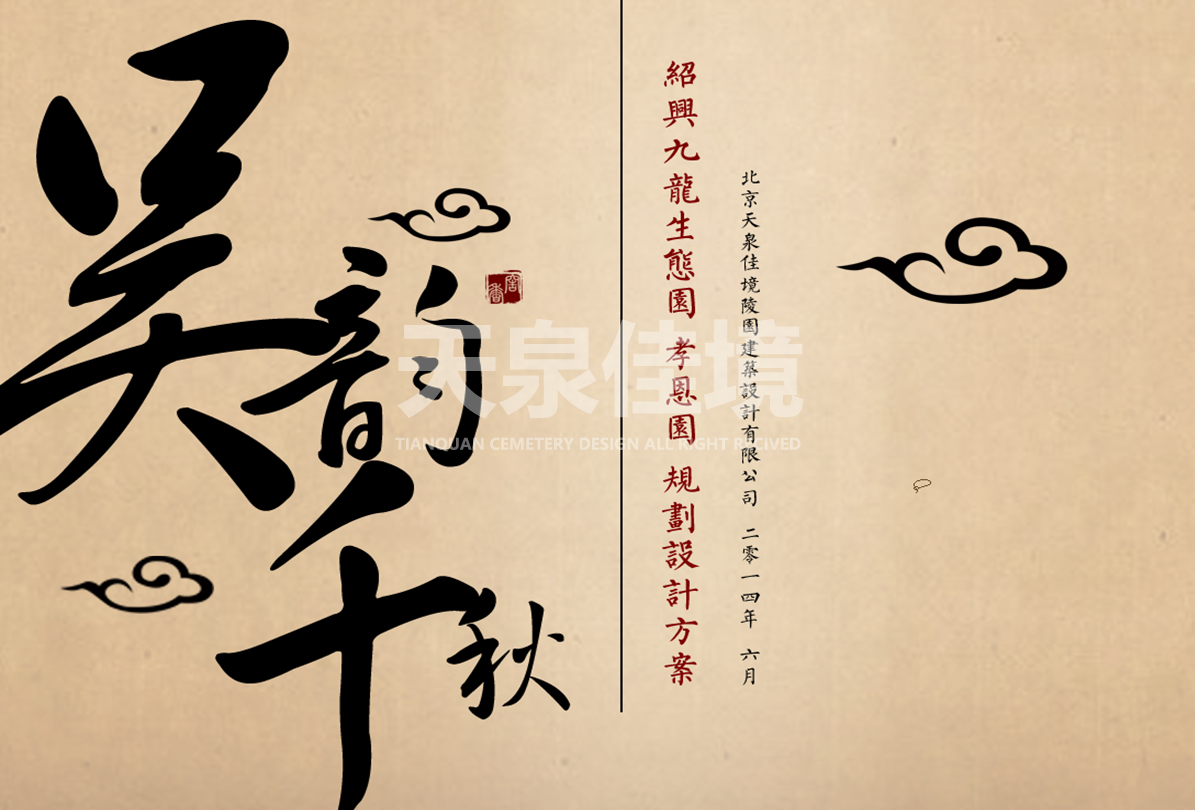 吴韵千秋
紹興九龍生態園 孝恩園 規劃設計方案
北京天泉佳境陵園建築設計有限公司 二零一四年 六月
天泉佳境
TIANQUAN CEMETERY DESIGN ALL RIGHT RECIVED